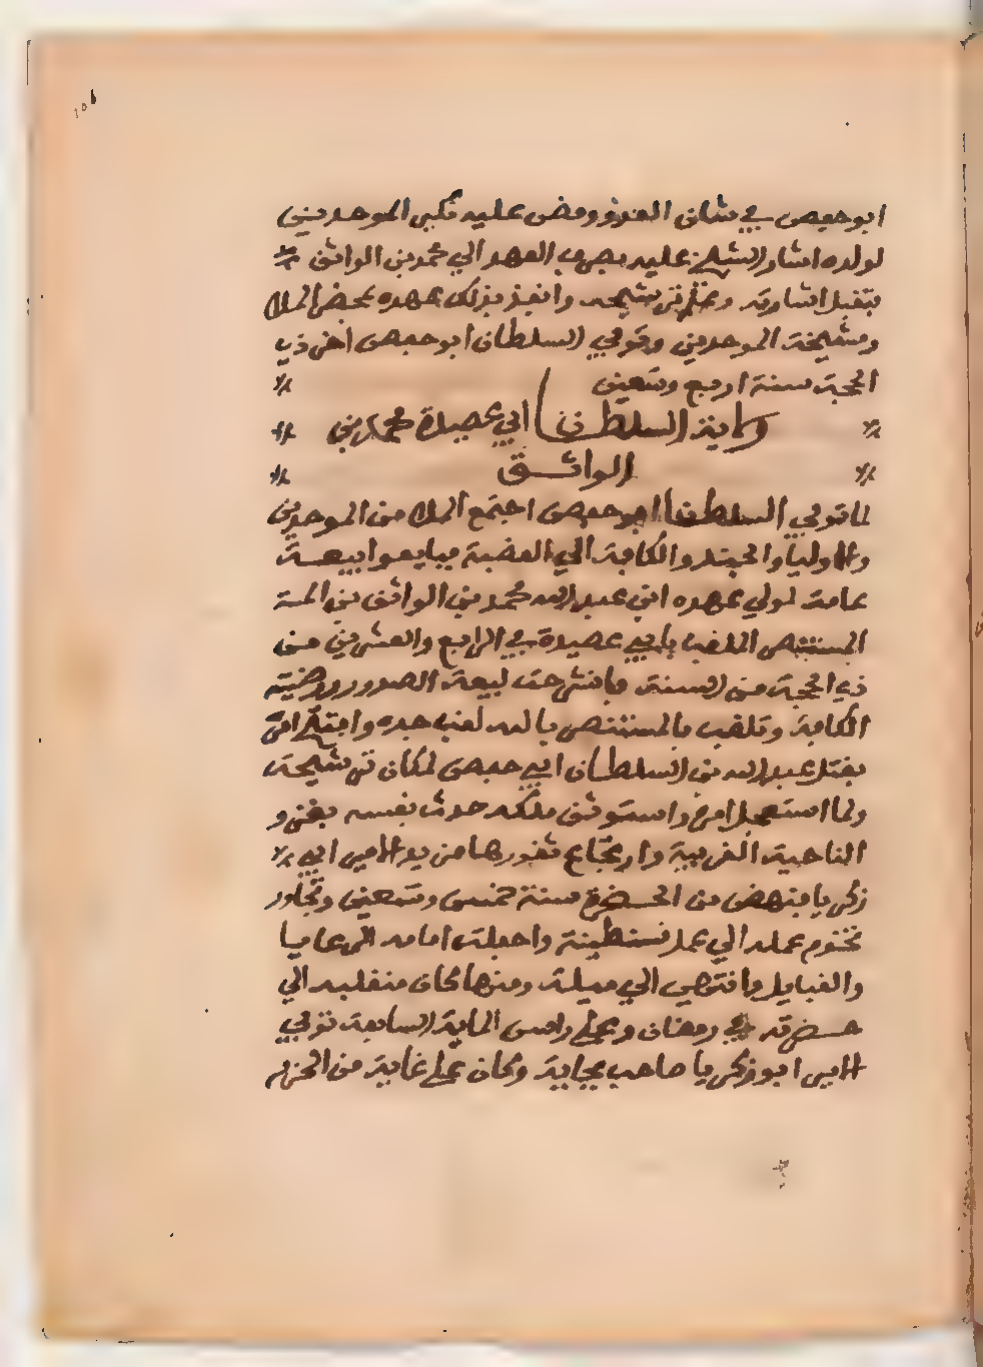 ١٥٦
ابو حفص في شان العدو ومضى عليه نكير الموحدين
لولده اشار الشيخ عليه بصرف العهد الي محمد بن الواثق
بتقبل اشارته وانفذ بذلك عهده بمحضر الملا
ومشيخة الموحدين وتوفي السلطان ابو حفص اخر ذي
الحجة سنة اربع وتسعين
ولاية السلطان ابي عصيدة محمد بن
الواثق
لما توفي السلطان ابو حفص اجتمع الملا من الموحدين
والاوليا والجند والكافة الي القصبة فبايعوا بيعة
عامة لولي عهده ابي عبد الله محمد بن الواثق بن
المستنصر الملقب بابي عصيدة في الرابع والعشرين من
ذي الحجة من السنة فانشرحت لبيعته الصدور ورضيته
الكافة وتلقب بالمستنصر بالله لقب جده وافتتح امره
بقتل عبد الله بن السلطان ابي حفص لمكان ترشيحه
ولما استفحل امره واستوثق ملكه حدث نفسه بغزو
الناحية الغربية وارتجاع ثغورها من يد الامير ابي
زكريا فنهض من الحضرة سنة خمس وتسعين وتجاوز
تخوم عمله الي عمل قسنطينة واجفلت امامه الرعايا
والقبايل وانتهى الي ميلة ومنها كان منقلبه الي
حضرته في رمضان وعلى راس الماية السابعة توفي
الامير ابو زكريا صاحب بجاية وكان على غاية من الحزم